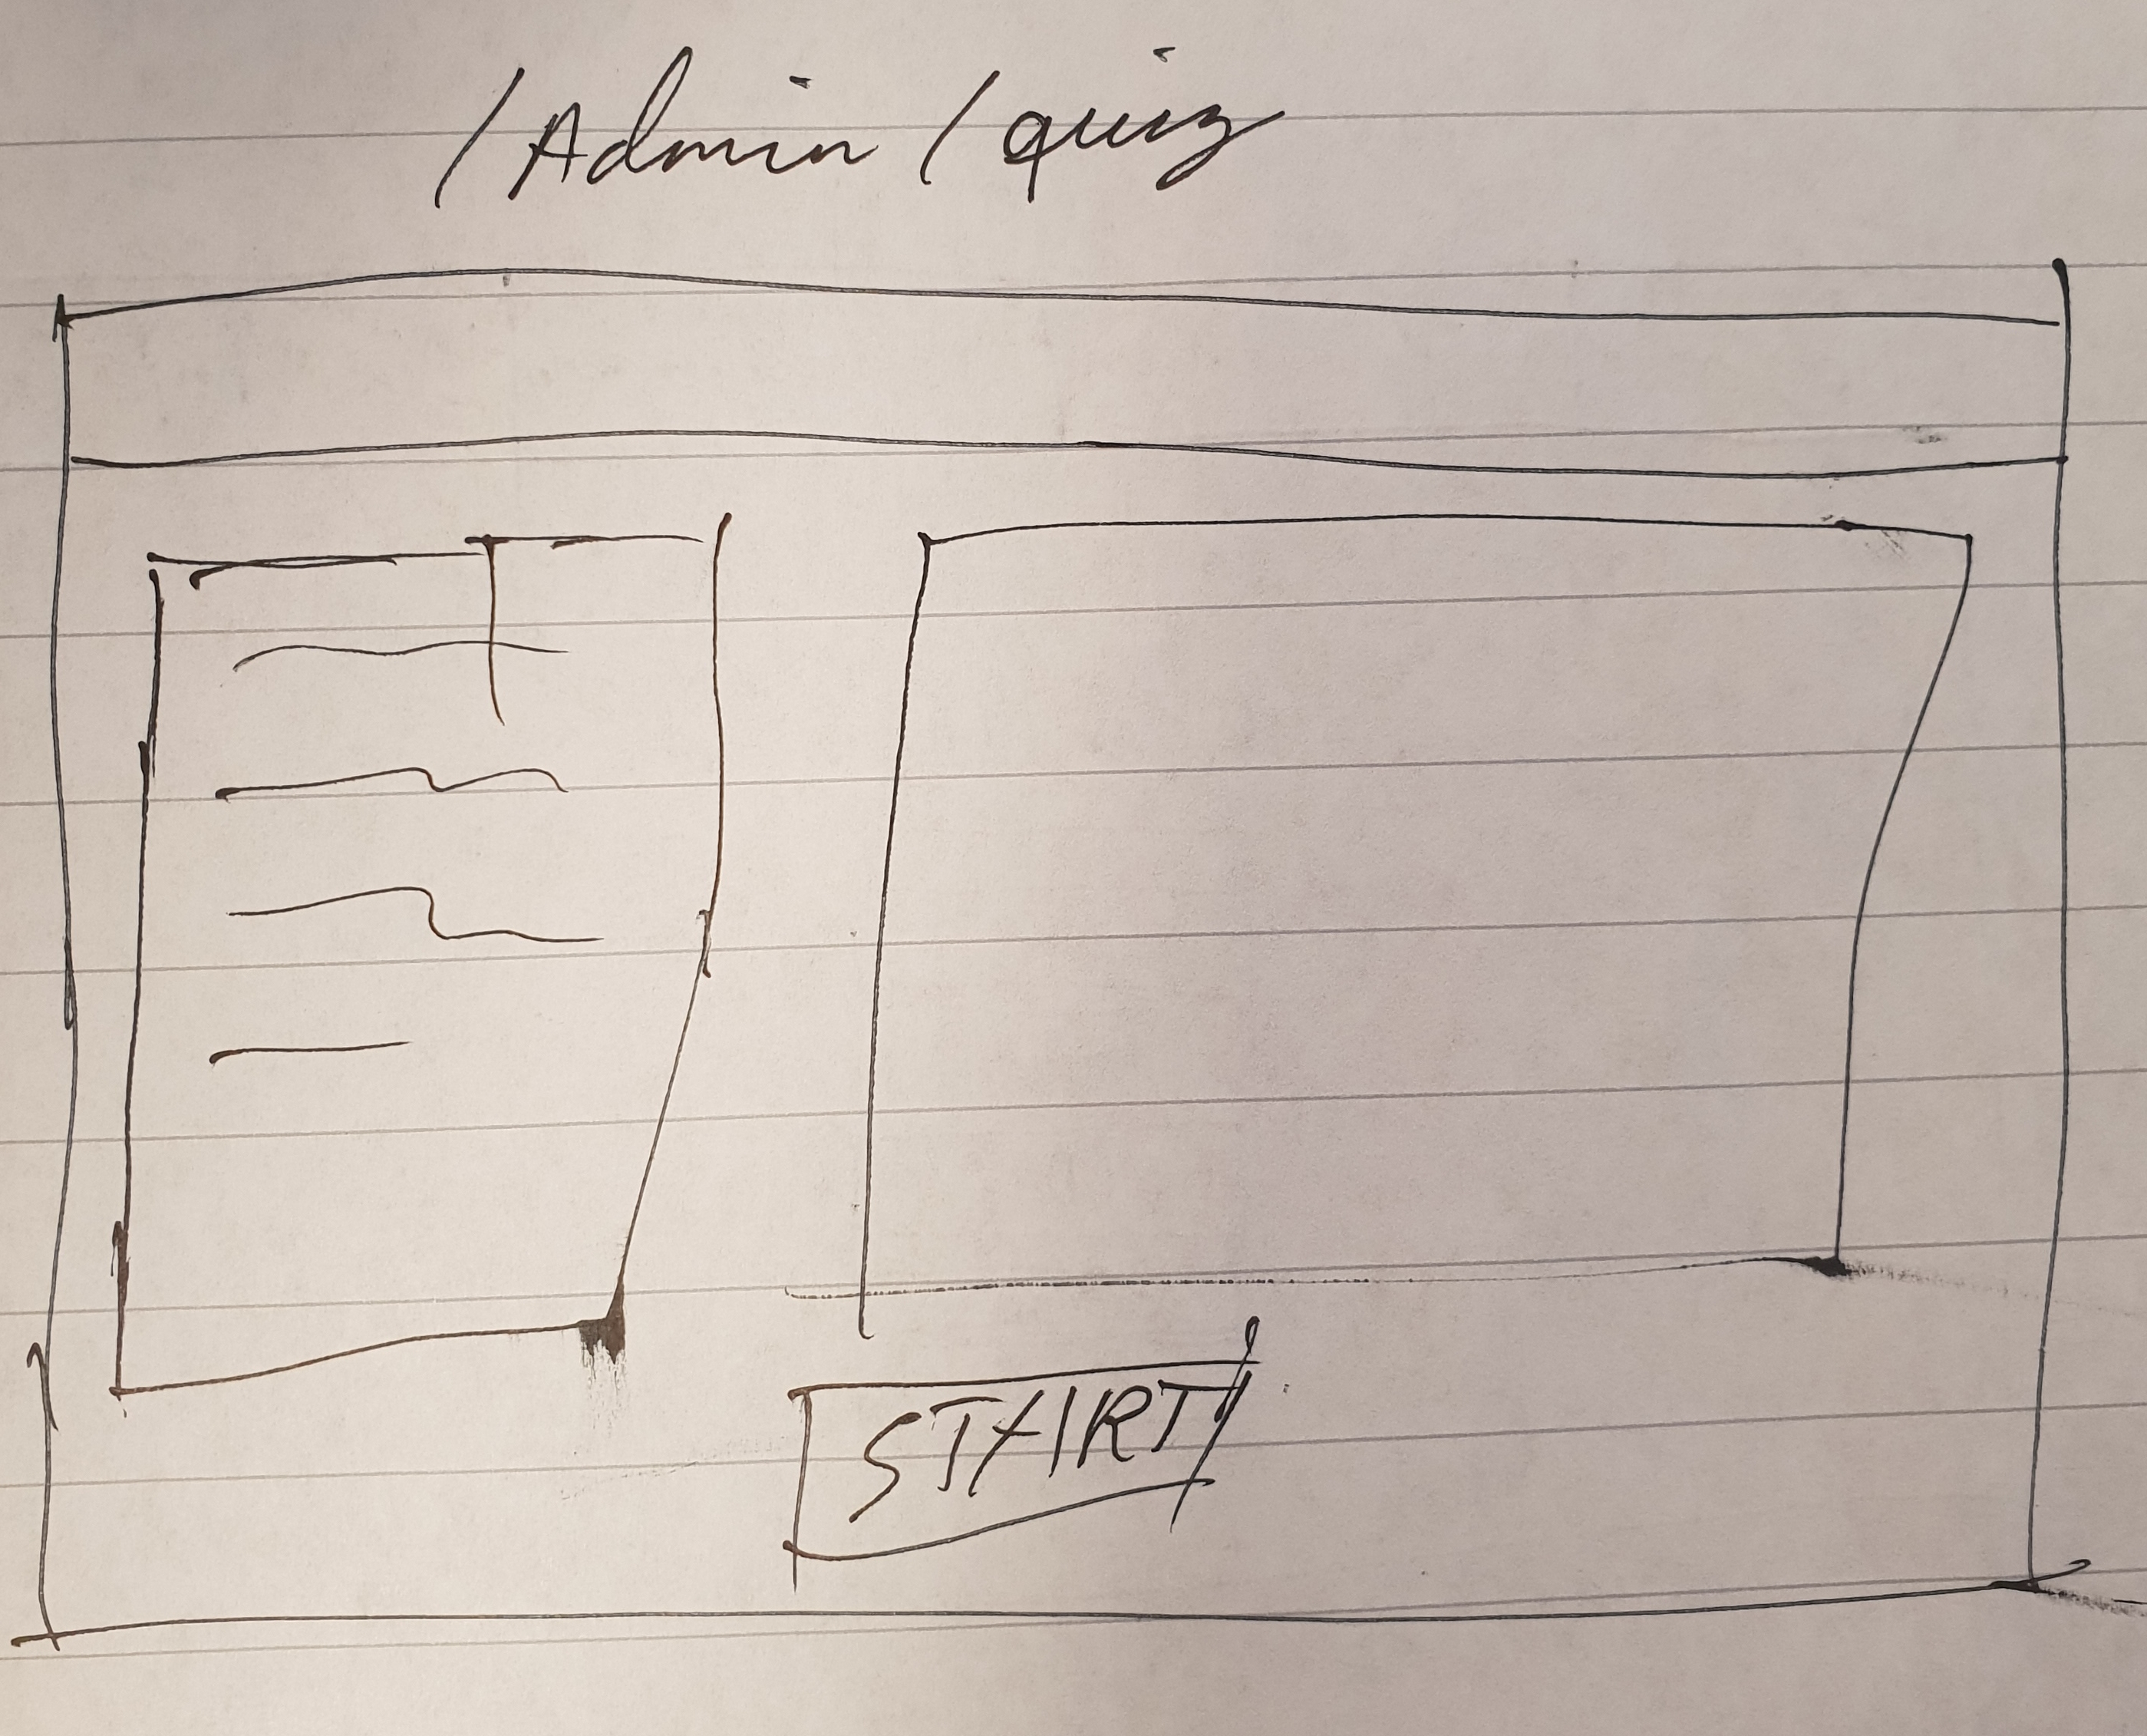 /Admin/quiz
START